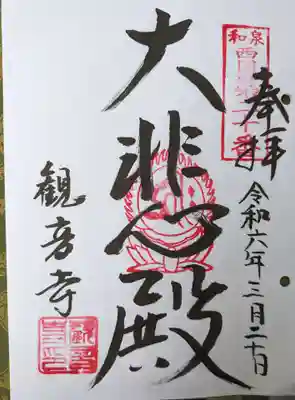 奉拝
令和六年三月二十日
和泉
西国
大悲殿
観音寺